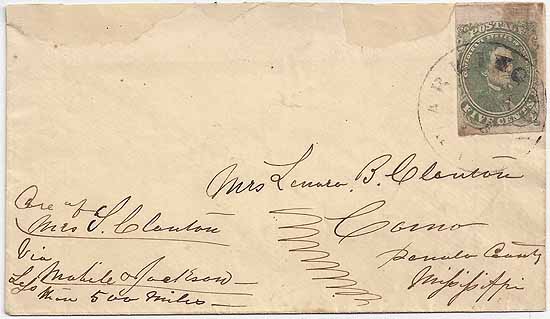 POSTAGE
FIVE CENTS
Mrs Lenora. B. Clanton
Como
Panola County
Mississippi
Care of
Mrs S. Clanton
Via
Mobile & Jackson
Less than 500 miles